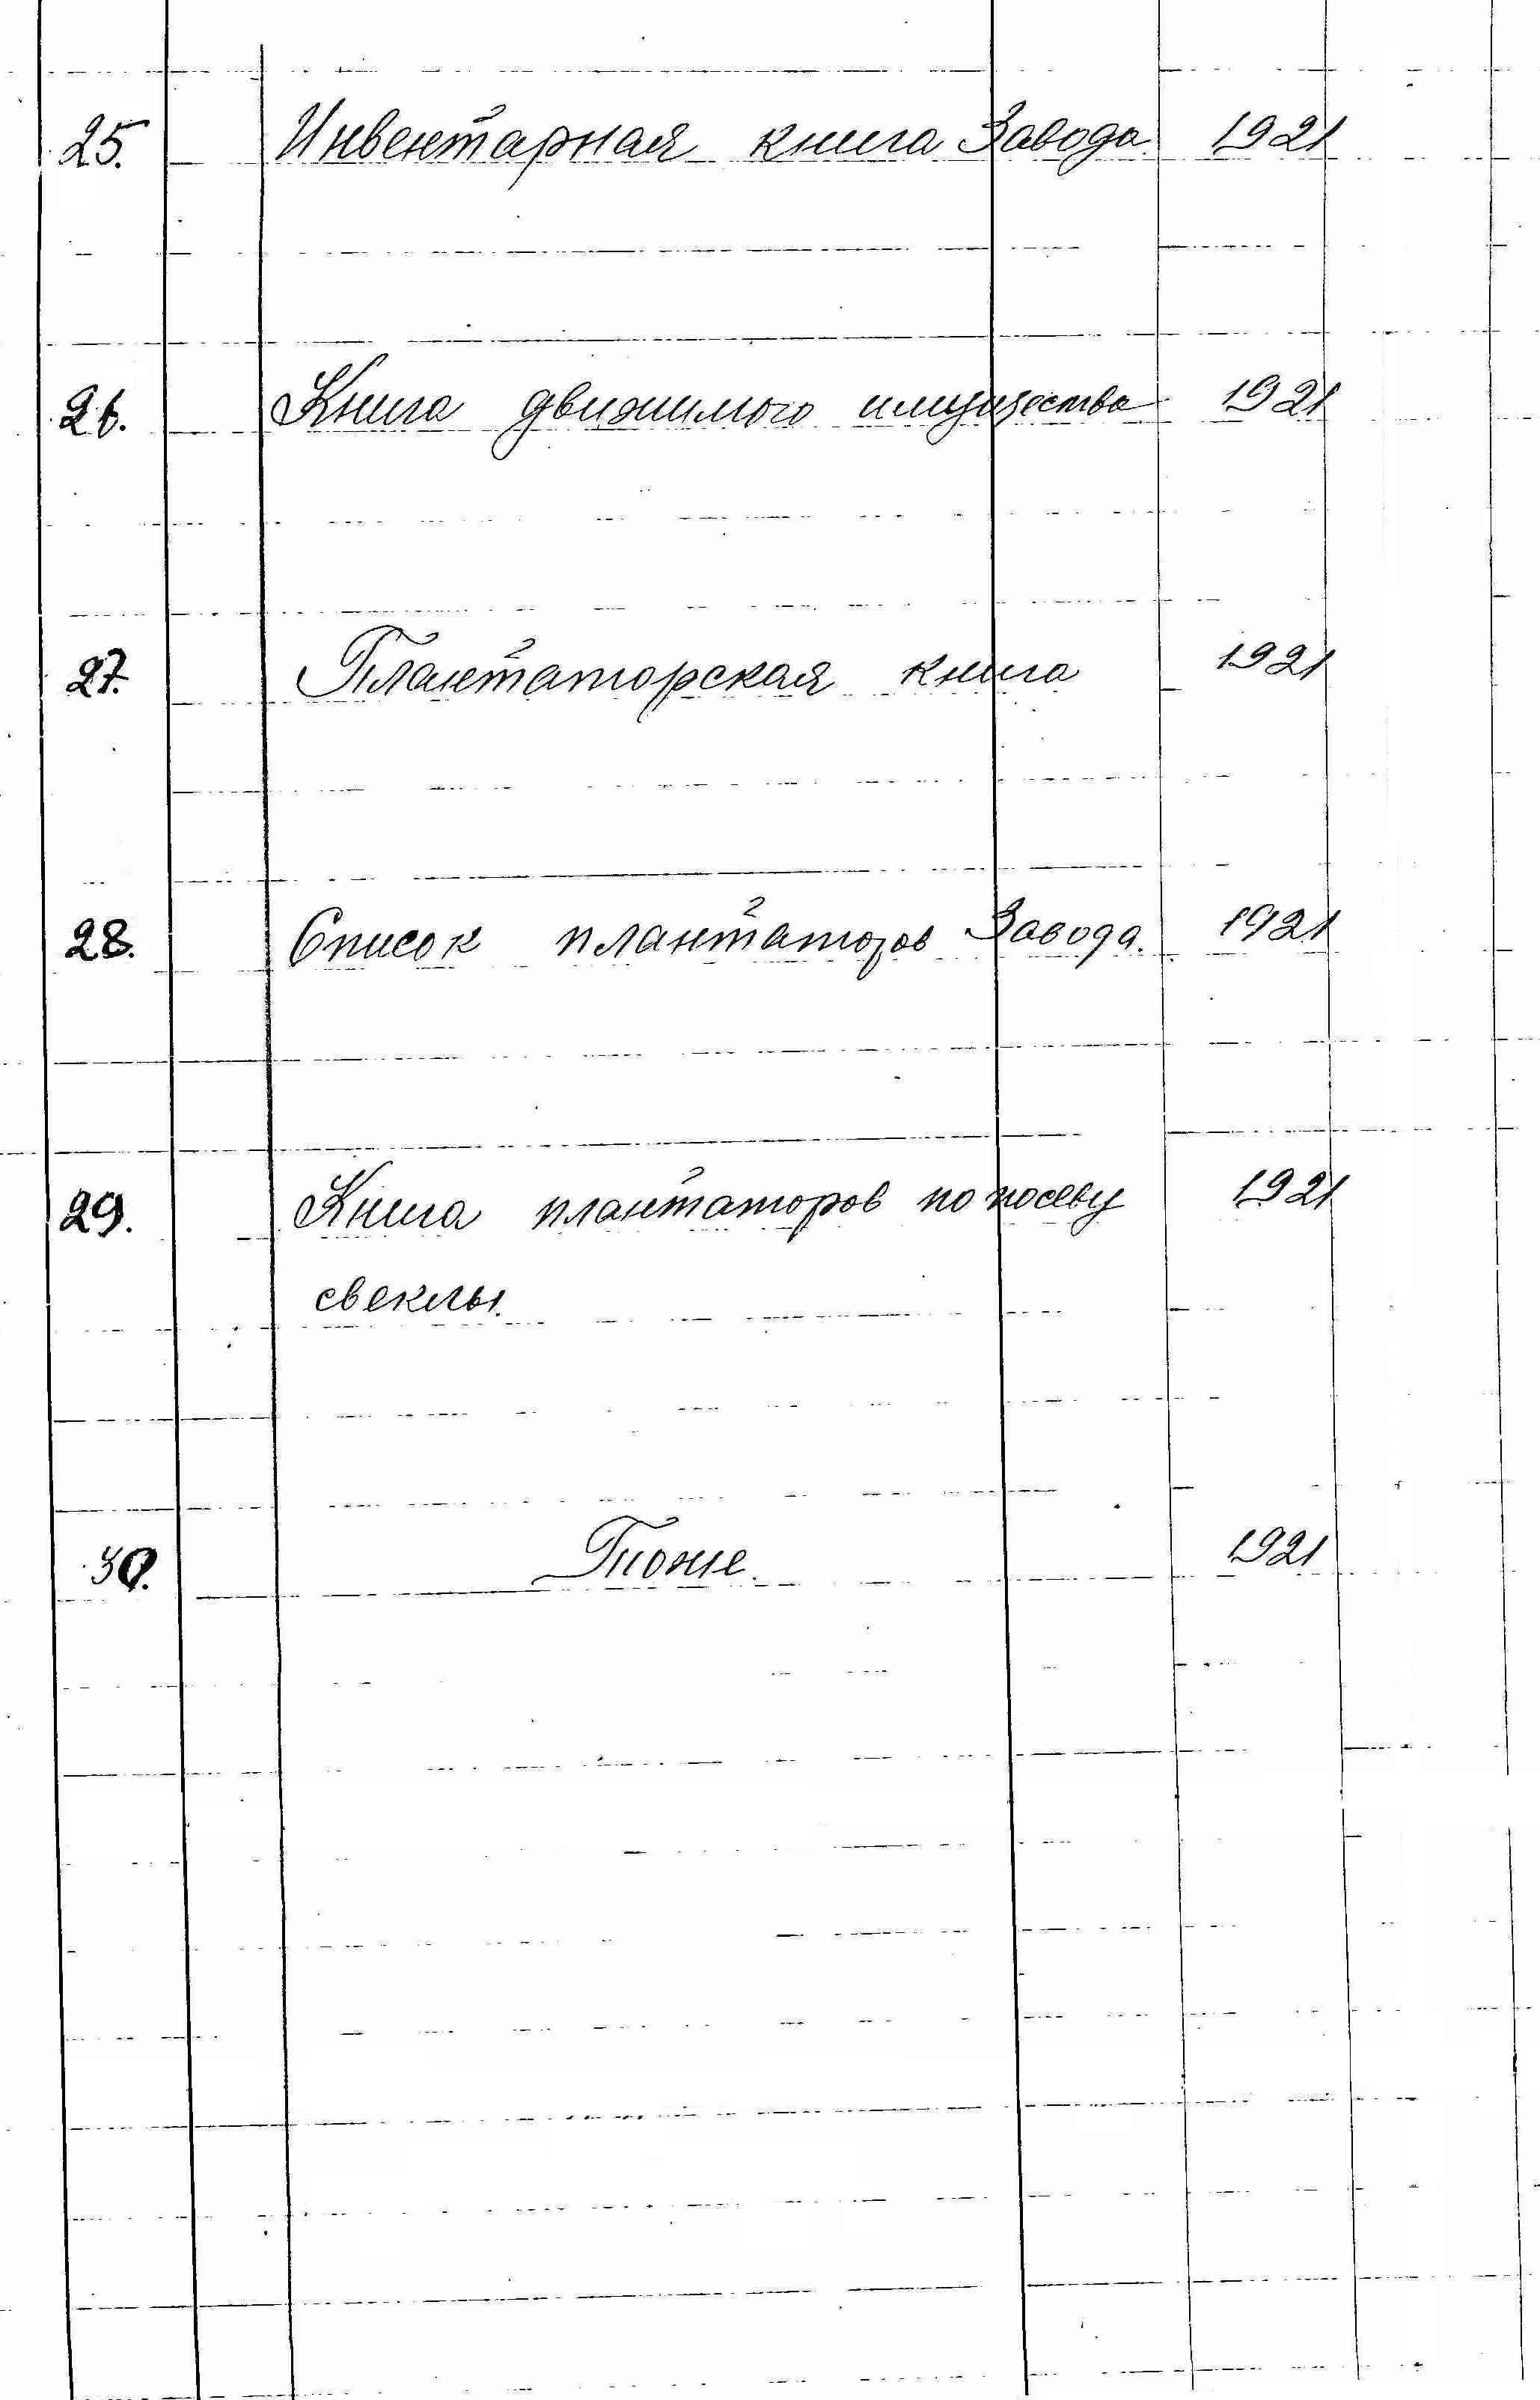 25. Инвентарная книга Завода 1921
26. Книга движимого имущества 1921
27. Плантаторская книга 1921
28. Список плантаторов Завода. 1921
29. Книга плантаторов по посеву 1921
свеклы.
30. Тоже 1921